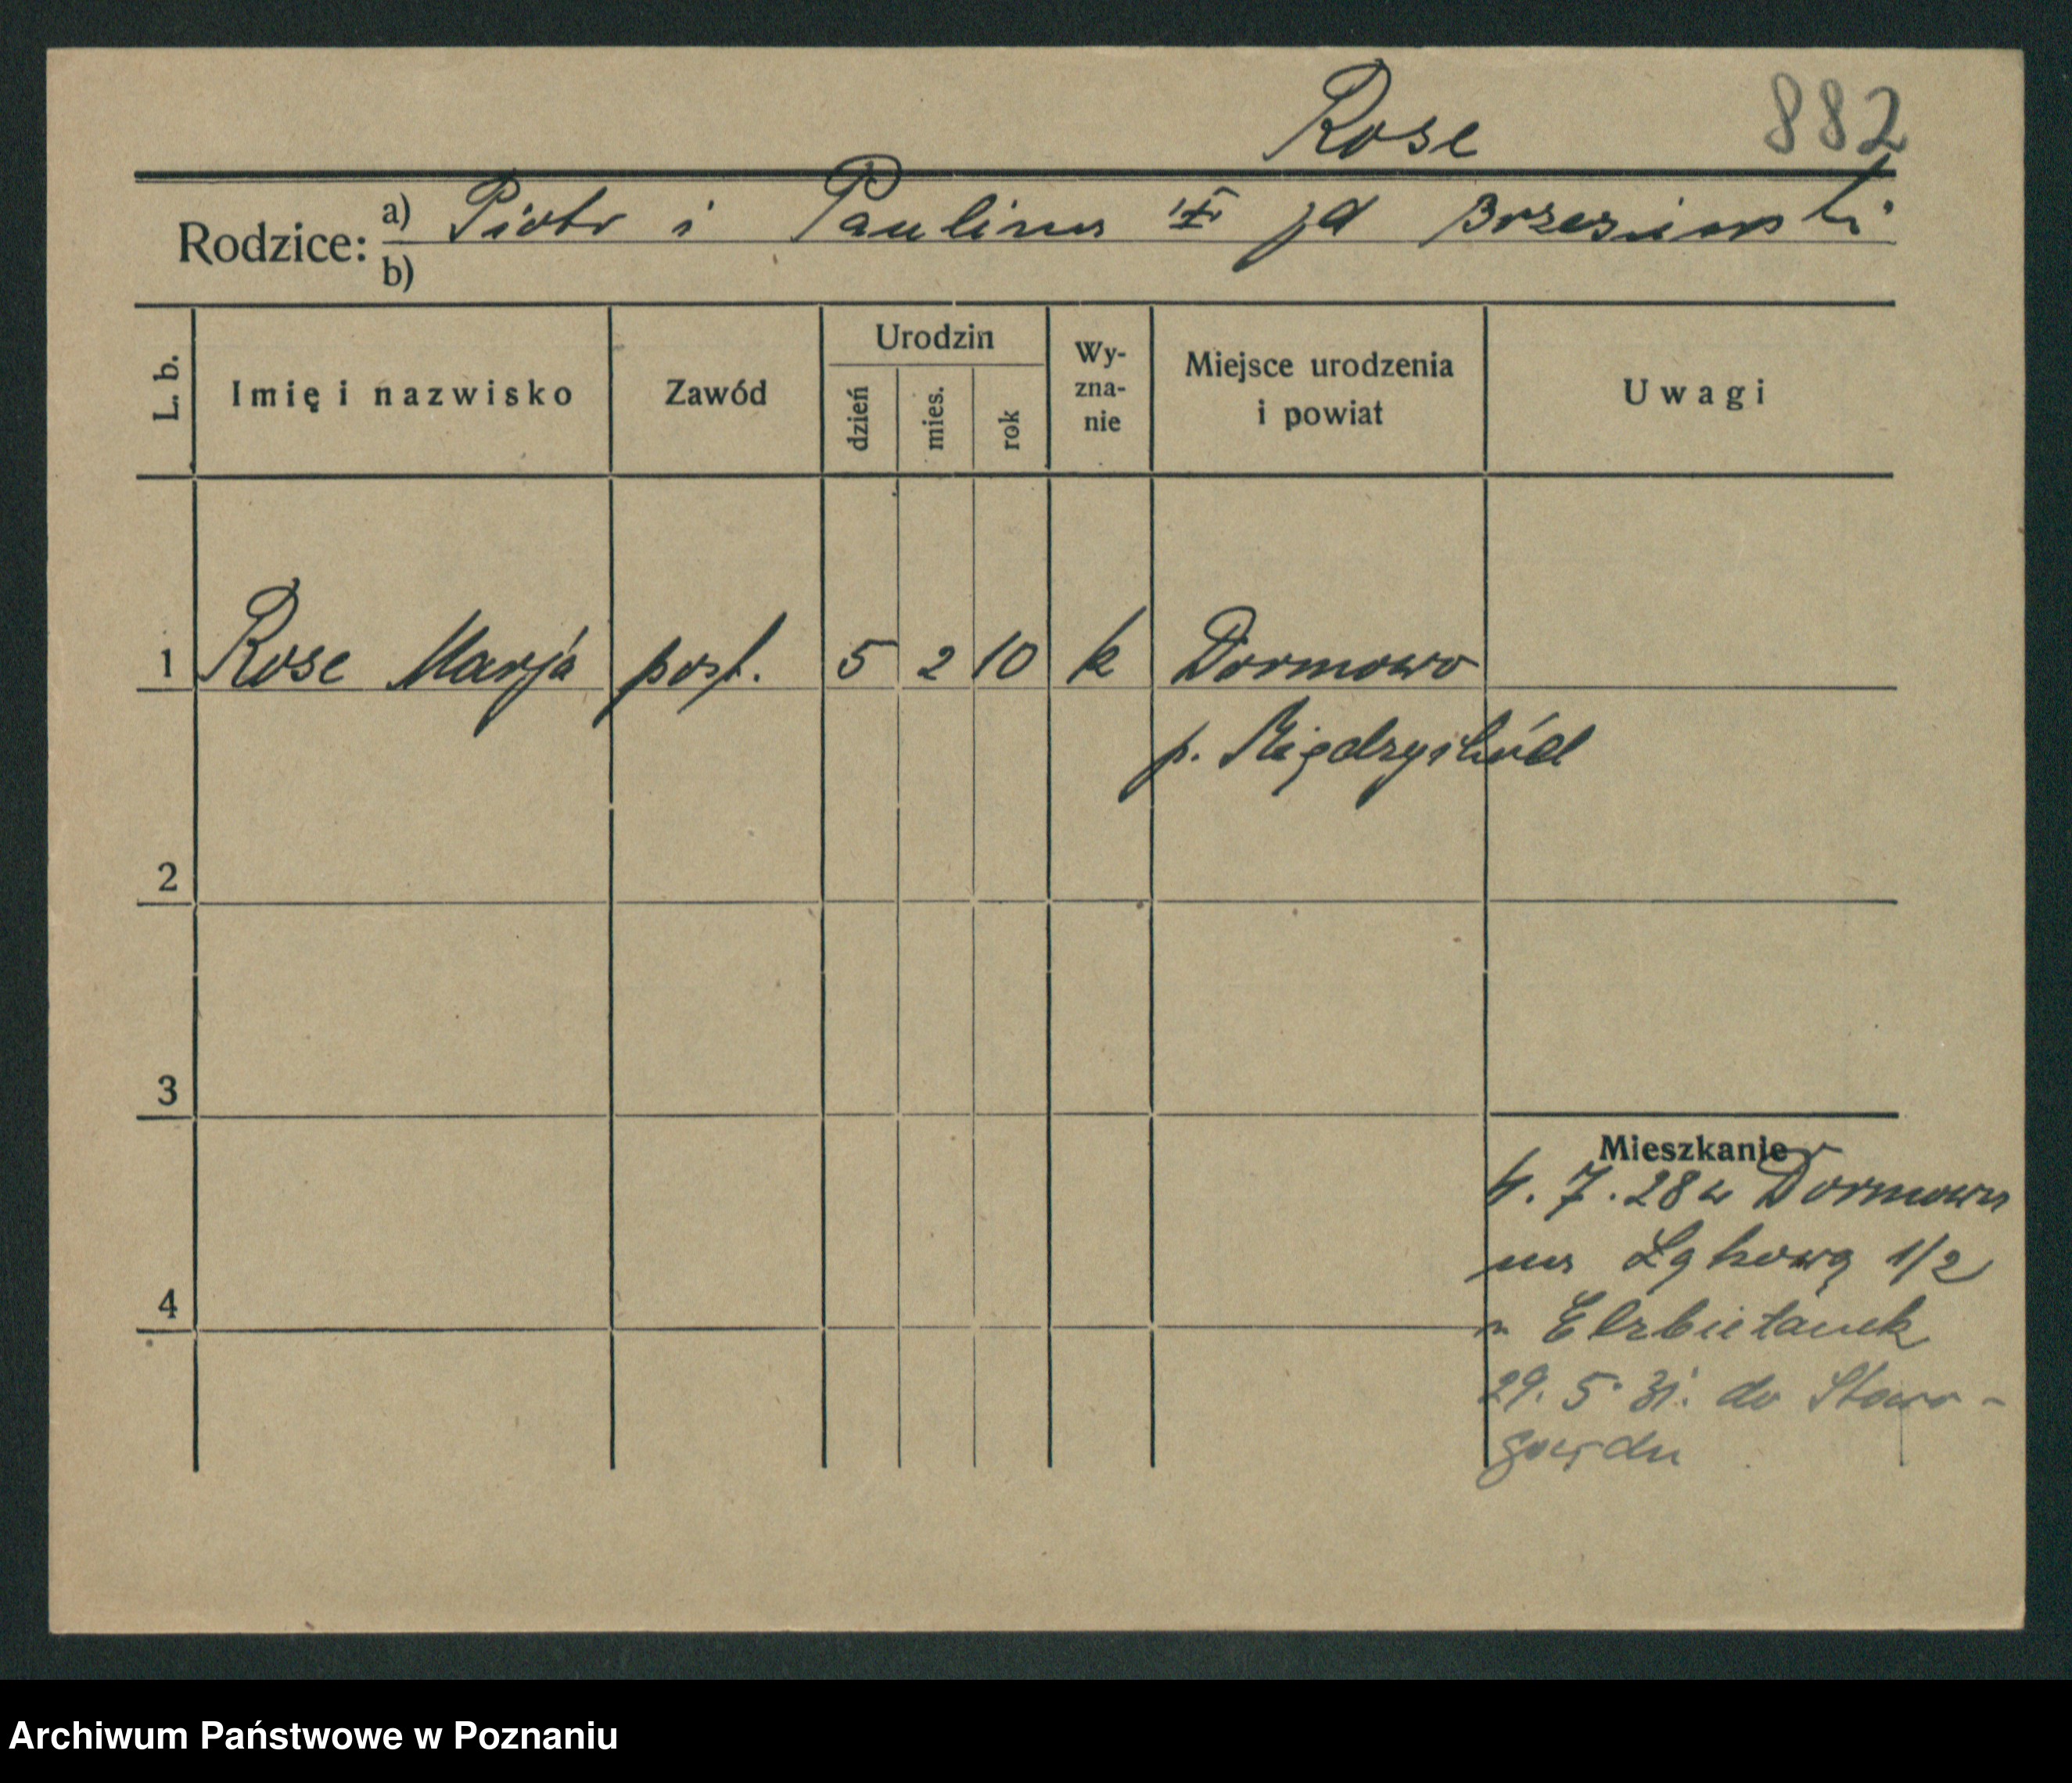 Rose 882
Rodzice: a) Piotr i Paulina jd Brzesinski
b)
L. b. Imię i nazwisko Zawód Urodzin dzień mies. rok Wy-zna-nie Miejsce urodzenia i powiat Uwagi
1 Rose Marja post. 5 2 10 k Dormowo
p. Międzychód
2
3
Mieszkanie
4. 7. 28 z Dormowa
na Łąkową 1/2
4
u Elżbietanek
29. 5. 31. do Staro-
gardu
Archiwum Państwowe w Poznaniu